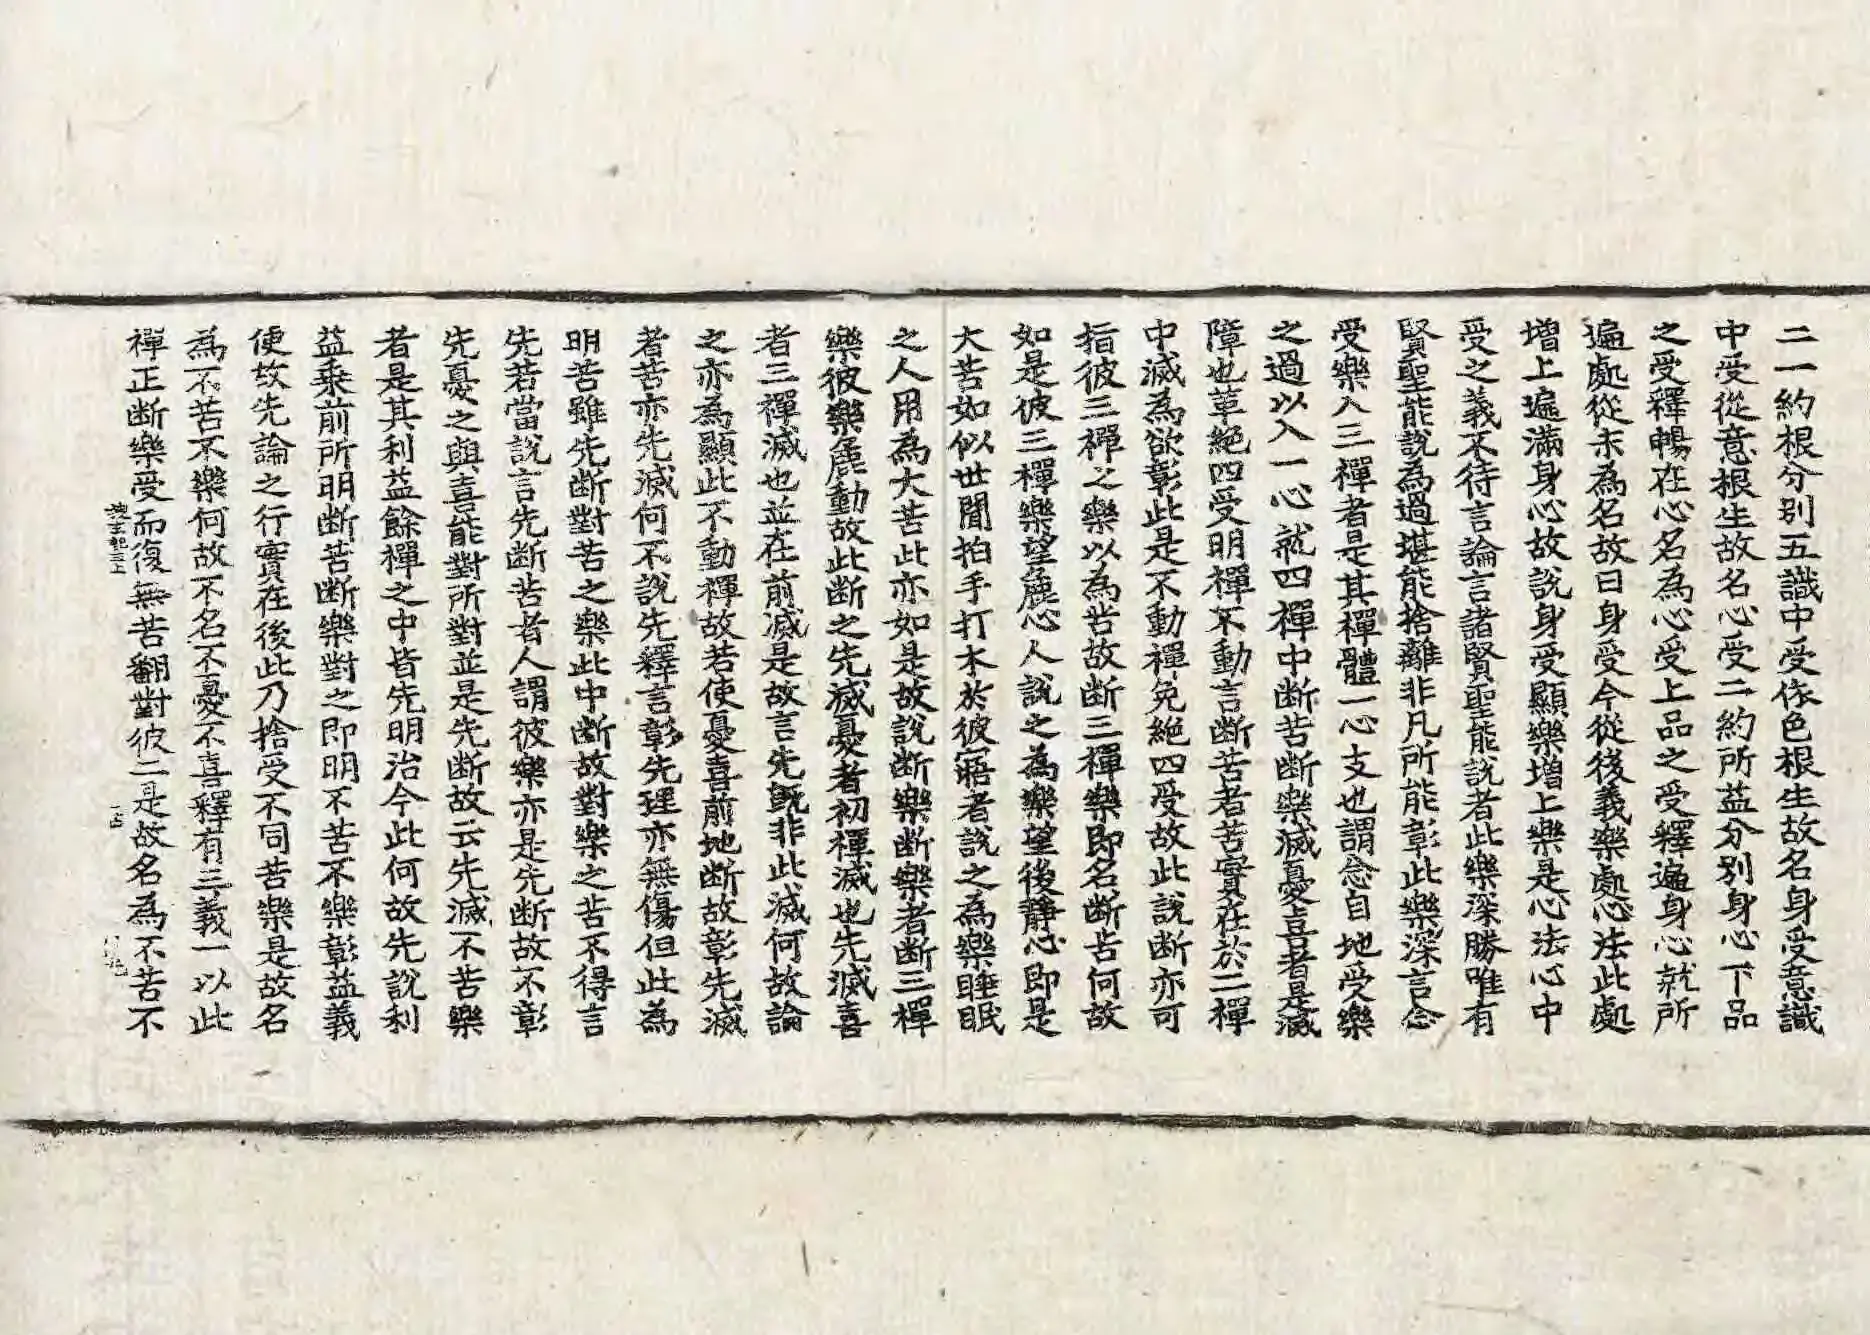 二一約根分別五識中受依色根生故名身受意識
中受從意根生故名心受二約所益分別身心下品
之受釋暢在心名為心受上品之受釋遍身心就所
遍處從末為名故曰身受今從後義樂處心法此處
增上遍滿身心故說身受顯樂增上樂是心法心中
受之義不待言論言諸賢聖能說者此樂深勝唯有
賢聖能說為過堪能捨離非凡所能彰此樂深言念
受樂入三禪者是其禪體一心支也謂念自地受樂
之過以入一心就四禪中断苦断樂滅憂喜者是滅
障也草絕四受明禪不動言断苦者苦實在於二禪
中滅為欲彰此是不動禪免絕四受故此說断亦可
指彼三禪之樂以為苦故断三禪樂即名断苦何故
如是彼三禪樂望麁心人說之為樂望後靜心即是
大苦如似世間拍手打木於彼寤者說之為樂睡眠
之人用為大苦此亦如是故說断樂断樂者断三禪
樂彼樂麁動故此断之先滅憂者初禪滅也先滅喜
者三禪滅也並在前滅是故言先既非此滅何故論
之亦為顯此不動禪故若使憂喜前地断故彰先滅
者苦亦先滅何不說先釋言彰先理亦無傷但此為
明苦雖先断對苦之樂此中断故對樂之苦不得言
先若當說言先断苦者人謂彼樂亦是先断故不彰
先憂之與喜能對所對並是先断故云先滅不苦樂
者是其利益餘禪之中皆先明治今此何故先說利
益乘前所明断苦断樂對之即明不苦不樂彰益義
便故先論之行實在後此乃捨受不同苦樂是故名
為不苦不樂何故不名不憂不喜釋有三義一以此
禪正断樂受而復無苦翻對彼二是故名為不苦不